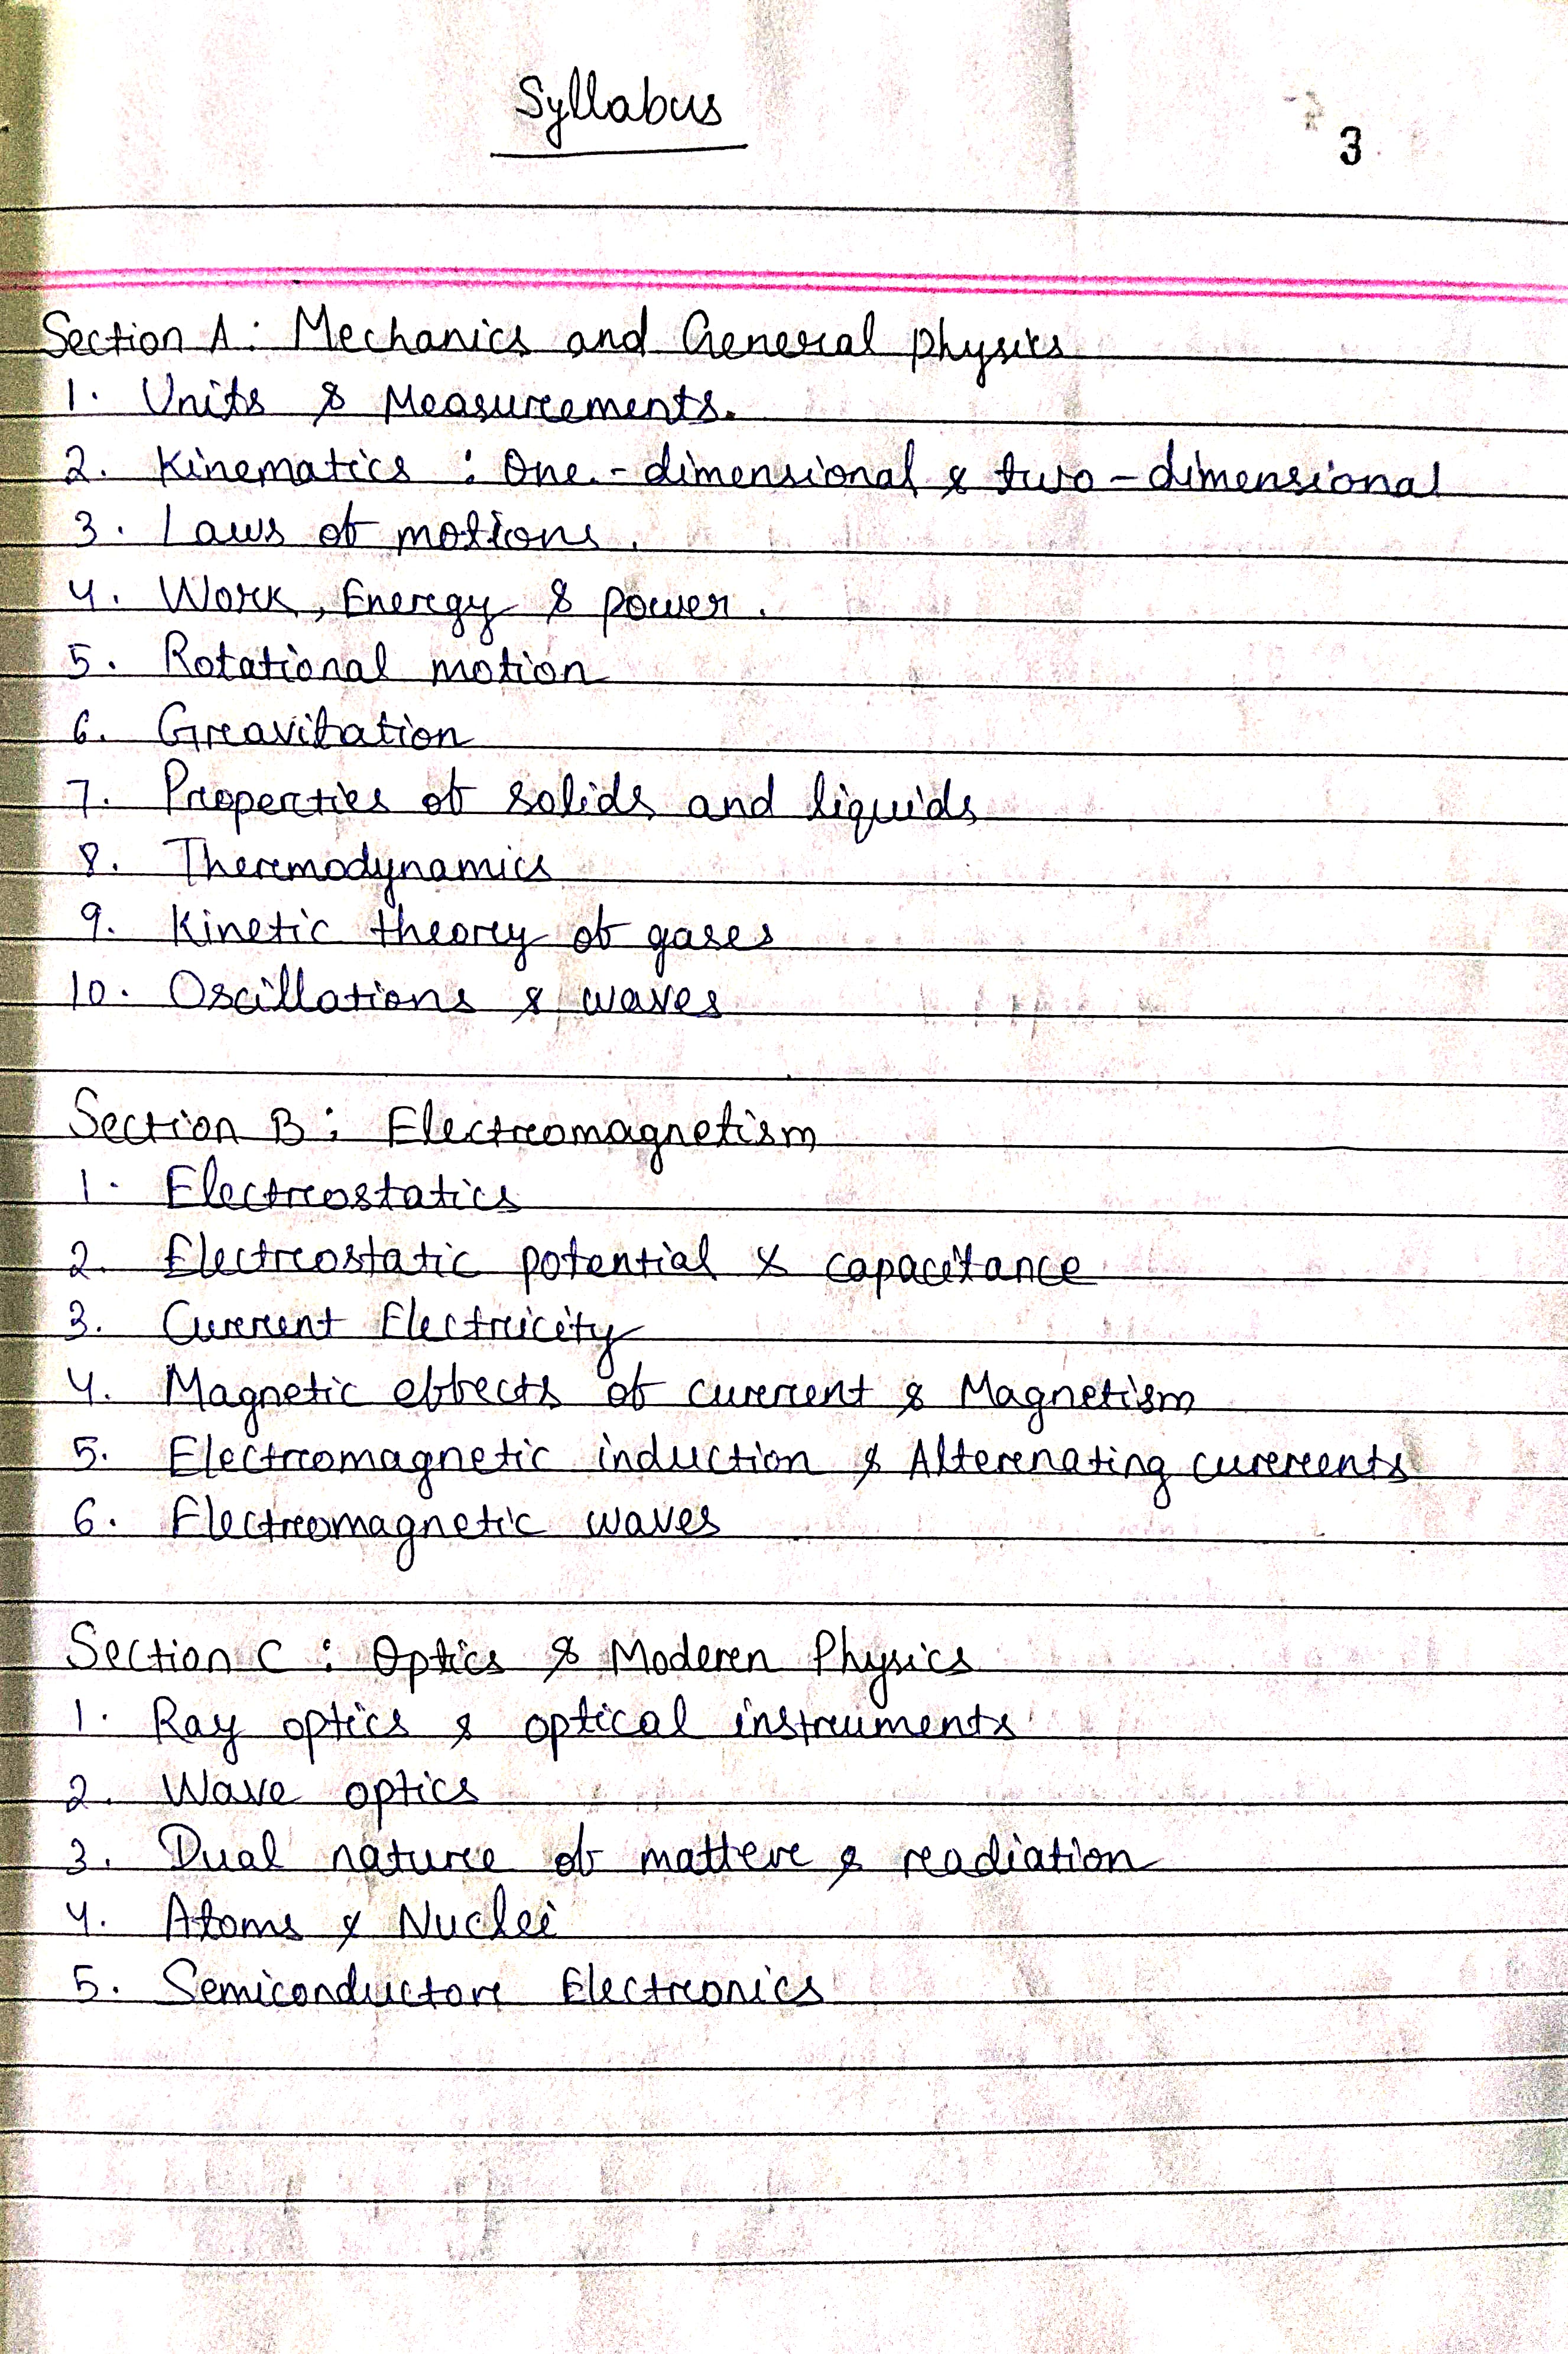 Syllabus
3
Section A: Mechanics and General physics
1. Units & Measurements.
2. Kinematics : One - dimensional & two - dimensional
3. Laws of motions.
4. Work, Energy & power.
5. Rotational motion
6. Gravitation
7. Properties of solids and liquids
8. Thermodynamics
9. Kinetic theory of gases
10. Oscillations & waves
Section B : Electromagnetism
1. Electrostatics
2. Electrostatic potential & capacitance
3. Current Electricity
4. Magnetic effects of current & Magnetism
5. Electromagnetic induction & Alternating currents
6. Electromagnetic waves
Section C : Optics & Modern Physics
1. Ray optics & optical instruments
2. Wave optics
3. Dual nature of matter & radiation
4. Atoms & Nuclei
5. Semiconductor Electronics